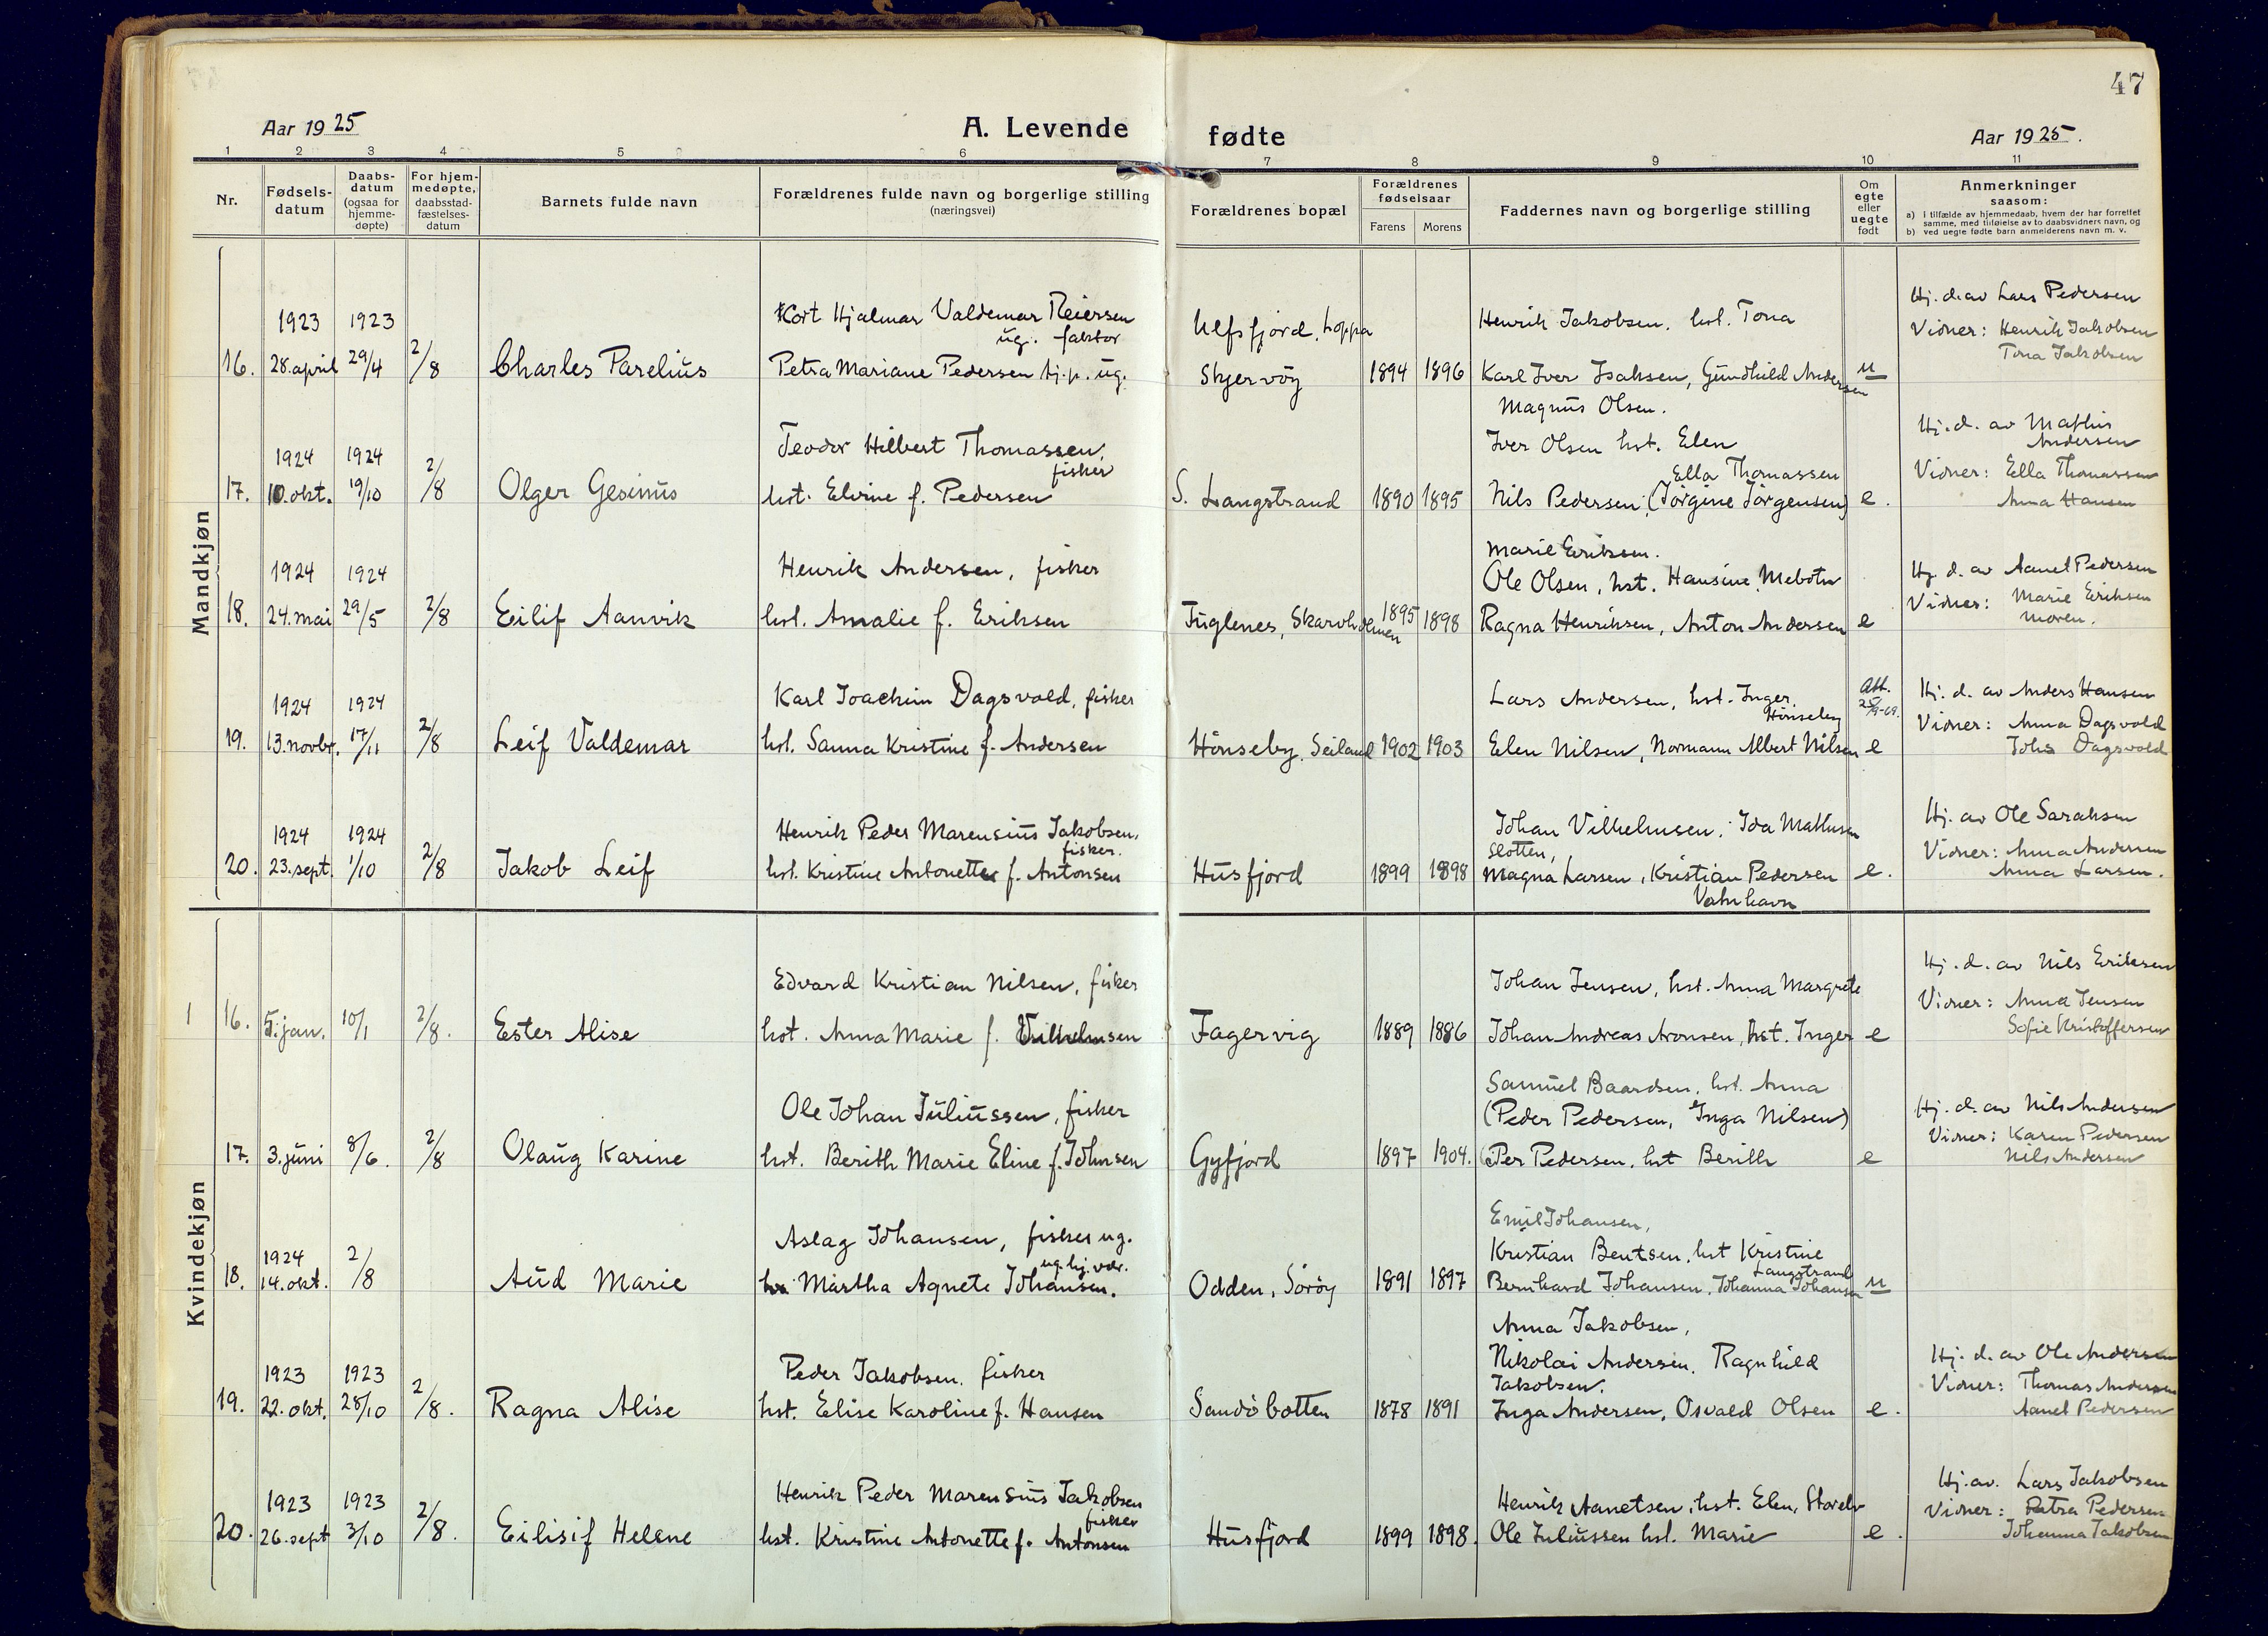 47
Aar 1925
A. Levende fødte
Aar 1925.
1 2 3 4 5 6 7 8 9 10 11
Nr.
Fødsels-
datum
Daabs-
datum
(ogsaa for
hjemme-
døpte)
For hjem-
medøpte,
daabsstad-
fæstelses-
datum
Barnets fulde navn
Forældrenes fulde navn og borgerlige stilling
(næringsvei)
Forældrenes bopæl
Forældrenes
fødselsaar
Farens Morens
Faddernes navn og borgerlige stilling
Om
egte
eller
uegte
født
Anmerkninger
saasom:
a) i tilfælde av hjemmedaab, hvem der har forrettet
samme, med tilføielse av to daabsvidners navn, og
b) ved uegte fødte barn anmelderens navn m. v.
Mandkjøn
1923 1923
16. 28. april 29/4 2/8 Charles Parelius
Kort Hjalmar Valdemar Reiersen
ug. faktor
Petra Mariane Pedersen tj.p. ug.
Ulfsfjord, Loppa
Skjervøy 1894 1896
Henrik Jakobsen. hst. Tona
Karl Iver Isaksen, Gundhild Andersen
Magnus Olsen.
u
Hj. d. av Lars Pedersen
Vidner: Henrik Jakobsen
Tona Jakobsen
1924 1924
17. 10. okt. 19/10 2/8 Olger Gesinus
Teodor Hilbert Thomassen,
fisker
hst. Elvine f. Pedersen
S. Langstrand 1890 1895
Iver Olsen hst. Elen
Ella Thomassen
Nils Pedersen, (Jørgine Jørgensen) e.
Hj. d. av Mathis
Andersen
Vidner: Ella Thomassen
Anna Hansen
1924 1924
18. 24. mai 29/5 2/8 Eilif Aanvik
Henrik Andersen, fisker
hst. Amalie f. Eriksen
Fuglenes, Skarvholmen 1895 1898
Marie Eriksen.
Ole Olsen, hst. Hansine, Mebotn
Ragna Henriksen, Anton Andersen e
Hj. d. av Aanet Pedersen
Vidner: Marie Eriksen
moren.
1924 1924
19. 13. novbr. 17/11 2/8 Leif Valdemar
Karl Joachim Dagsvold, fisker
hst. Sanna Kristine f. Andersen
Hønseby, Seiland 1902 1903
Lars Andersen, hst. Inger,
Hønseby
Elen Nilsen, Normann Albert Nilsen e
Att.
Hj. d. av Anders Hansen
Vidner: Anna Dagsvold
Johs Dagsvold
1924 1924
20. 23. sept. 1/10 2/8 Jakob Leif
Henrik Peder Marensius Jakobsen,
fisker.
hst. Kristine Antonette f. Antonsen
Husfjord 1899 1898
Johan Vilhelmsen, Ida Mathisen
Slotten,
Magna Larsen, Kristian Pedersen e.
Vatnhavn
Hj. av Ole Saraksen
Vidner: Anna Andersen
Anna Larsen.
Kvindekjøn
1 16. 5. jan. 10/1 2/8. Ester Alise
Edvard Kristian Nilsen, fisker
hst. Anna Marie f. Vilhelmsen
Fagervig 1889 1886
Johan Jensen, hst. Anna Margrete
Johan Andreas Aronsen, hst. Inger e
Hj. d. av Nils Eriksen
Vidner: Anna Jensen
Sofie Kristoffersen
17. 3. juni 8/6. 2/8 Olaug Karine
Ole Johan Juliussen, fisker
hst. Berith Marie Eline f. Johnsen
Gyfjord 1897 1904.
Samuel Baardsen, hst. Anna
(Peder Pedersen, Inga Nilsen)
Per Pedersen, hst Berith e
Hj. d. av Nils Andersen
Vidner: Karen Pedersen
Nils Andersen
1924
18. 14. okt. 2/8 Aud Marie
Aslag Johansen, fisker ug.
ug. hj. vær.
Martha Agnete Johansen.
Odden, Sørøy 1891 1897
Emil Johansen,
Kristian Bentsen, hst Kristine
Langstrand
Bernhard Johansen, Johanna Johansen u
1923 1923
19. 22. okt. 28/10 2/8. Ragna Alise
Peder Jakobsen, fisker
hst. Elise Karoline f. Hansen
Sandøbotten 1878 1891
Anna Jakobsen,
Nikolai Andersen, Ragnhild
Jakobsen.
Inga Andersen, Osvald Olsen e.
Hj. d. av Ole Andersen
Vidner: Thomas Andersen
Aanet Pedersen
1923 1923
20. 26. sept 3/10 2/8. Eilisif Helene
Henrik Peder Marensius Jakobsen
fisker
hst. Kristine Antonette f. Antonsen
Husfjord 1899 1898.
Henrik Aanetsen, hst. Elen, Storelv
Ole Juliussen hst. Marie e.
Hj. av. Lars Jakobsen
Vidner: Petra Pedersen
Johanna Jakobsen